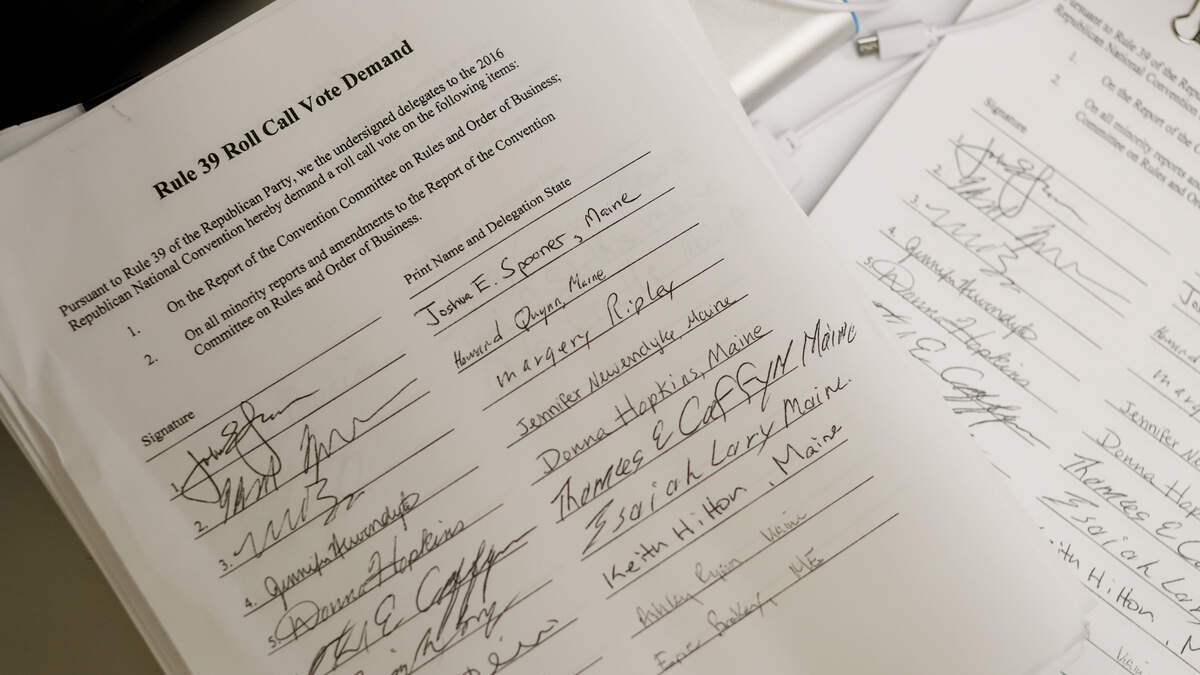 Rule 39 Roll Call Vote Demand
Pursuant to Rule 39 of the Republican Party, we the undersigned delegates to the 2016
Republican National Convention hereby demand a roll call vote on the following items:
1. On the Report of the Convention Committee on Rules and Order of Business;
2. On all minority reports and amendments to the Report of the Convention
Committee on Rules and Order of Business.
Signature Print Name and Delegation State
1. Joshua E. Spooner, Maine
2. Howard Quynn, Maine
3. margery Ripley
4. Jennifer Newendyke, Maine
5. Donna Hopkins Donna Hopkins, Maine
E Caffyn Thomas E Caffyn Maine
Esaiah Lary Maine.
Keith Hilton, Maine
Ashley Ryan Maine
ME
Pursuant to Rule 39 of the
Republican National Convention
1. On the Report of the
2. On all minority reports
Committee on Rules and
Signature
1.
2.
3.
4.
5. Donna Hopkins
E Caffyn
Jennifer
Donna
Thomas E
Esaiah Lary
Hilton,